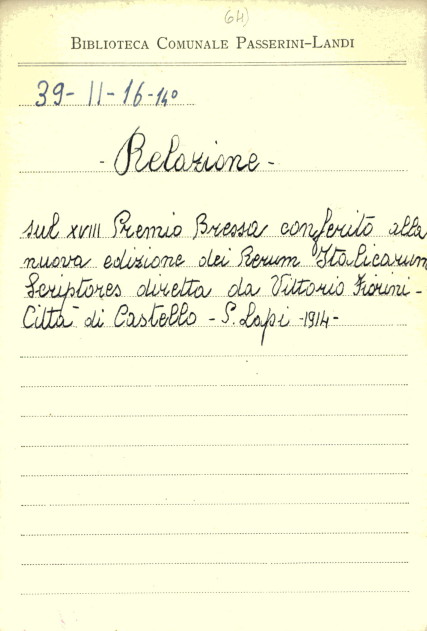 64)
BIBLIOTECA COMUNALE PASSERINI-LANDI
39- II - 16 - 14°
- Relazione -
sul XVIII Premio Bressa conferito alla
nuova edizione dei Rerum Italicarum
Scriptores diretta da Vittorio Fiorini -
Città di Castello - S. Lapi - 1914 -